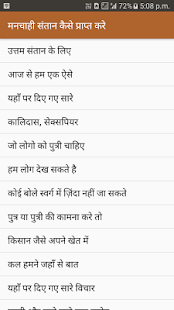 72% 5:08 p.m.
मनचाही संतान कैसे प्राप्त करे
उत्तम संतान के लिए
आज से हम एक ऐसे
यहाँ पर दिए गए सारे
कालिदास, सेक्सपियर
जो लोगो को पुत्री चाहिए
हम लोग देख सकते है
कोई बोले स्वर्ग में ज़िंदा नहीं जा सकते
पुत्र या पुत्री की कामना करे तो
किसान जैसे अपने खेत में
कल हमने जहाँ से बात
यहाँ पर दिए गए सारे विचार